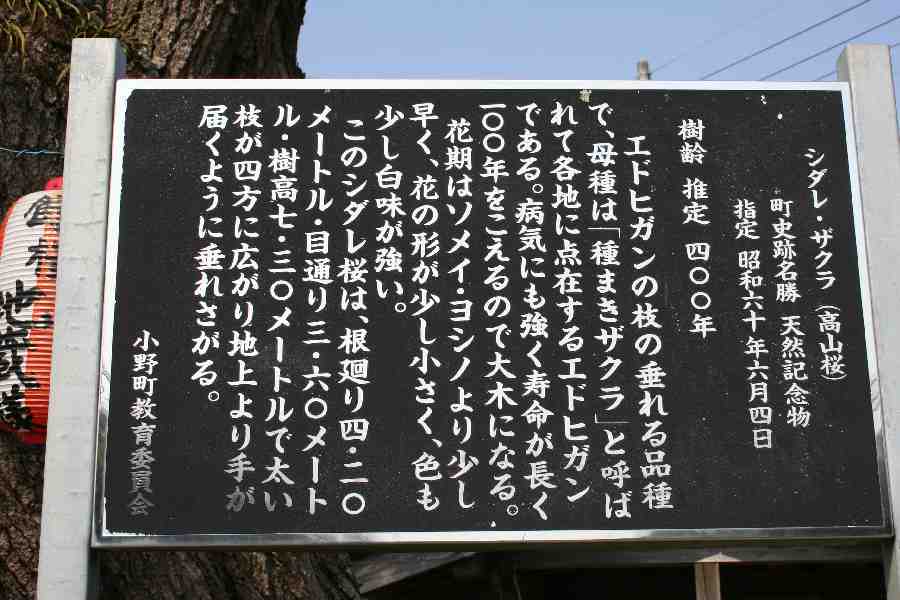 シダレ・ザクラ（高山桜）
町史跡名勝 天然記念物
指定 昭和六十年六月四日
樹齢 推定 四〇〇年
エドヒガンの枝の垂れる品種
で、母種は「種まきザクラ」と呼ば
れて各地に点在するエドヒガン
である。病気にも強く寿命が長く
一〇〇年をこえるので大木になる。
花期はソメイ・ヨシノより少し
早く、花の形が少し小さく、色も
少し白味が強い。
このシダレ桜は、根廻り四・二〇
メートル・目通り三・六〇メート
ル・樹高七・三〇メートルで太い
枝が四方に広がり地上より手が
届くように垂れさがる。
小野町教育委員会
地蔵様